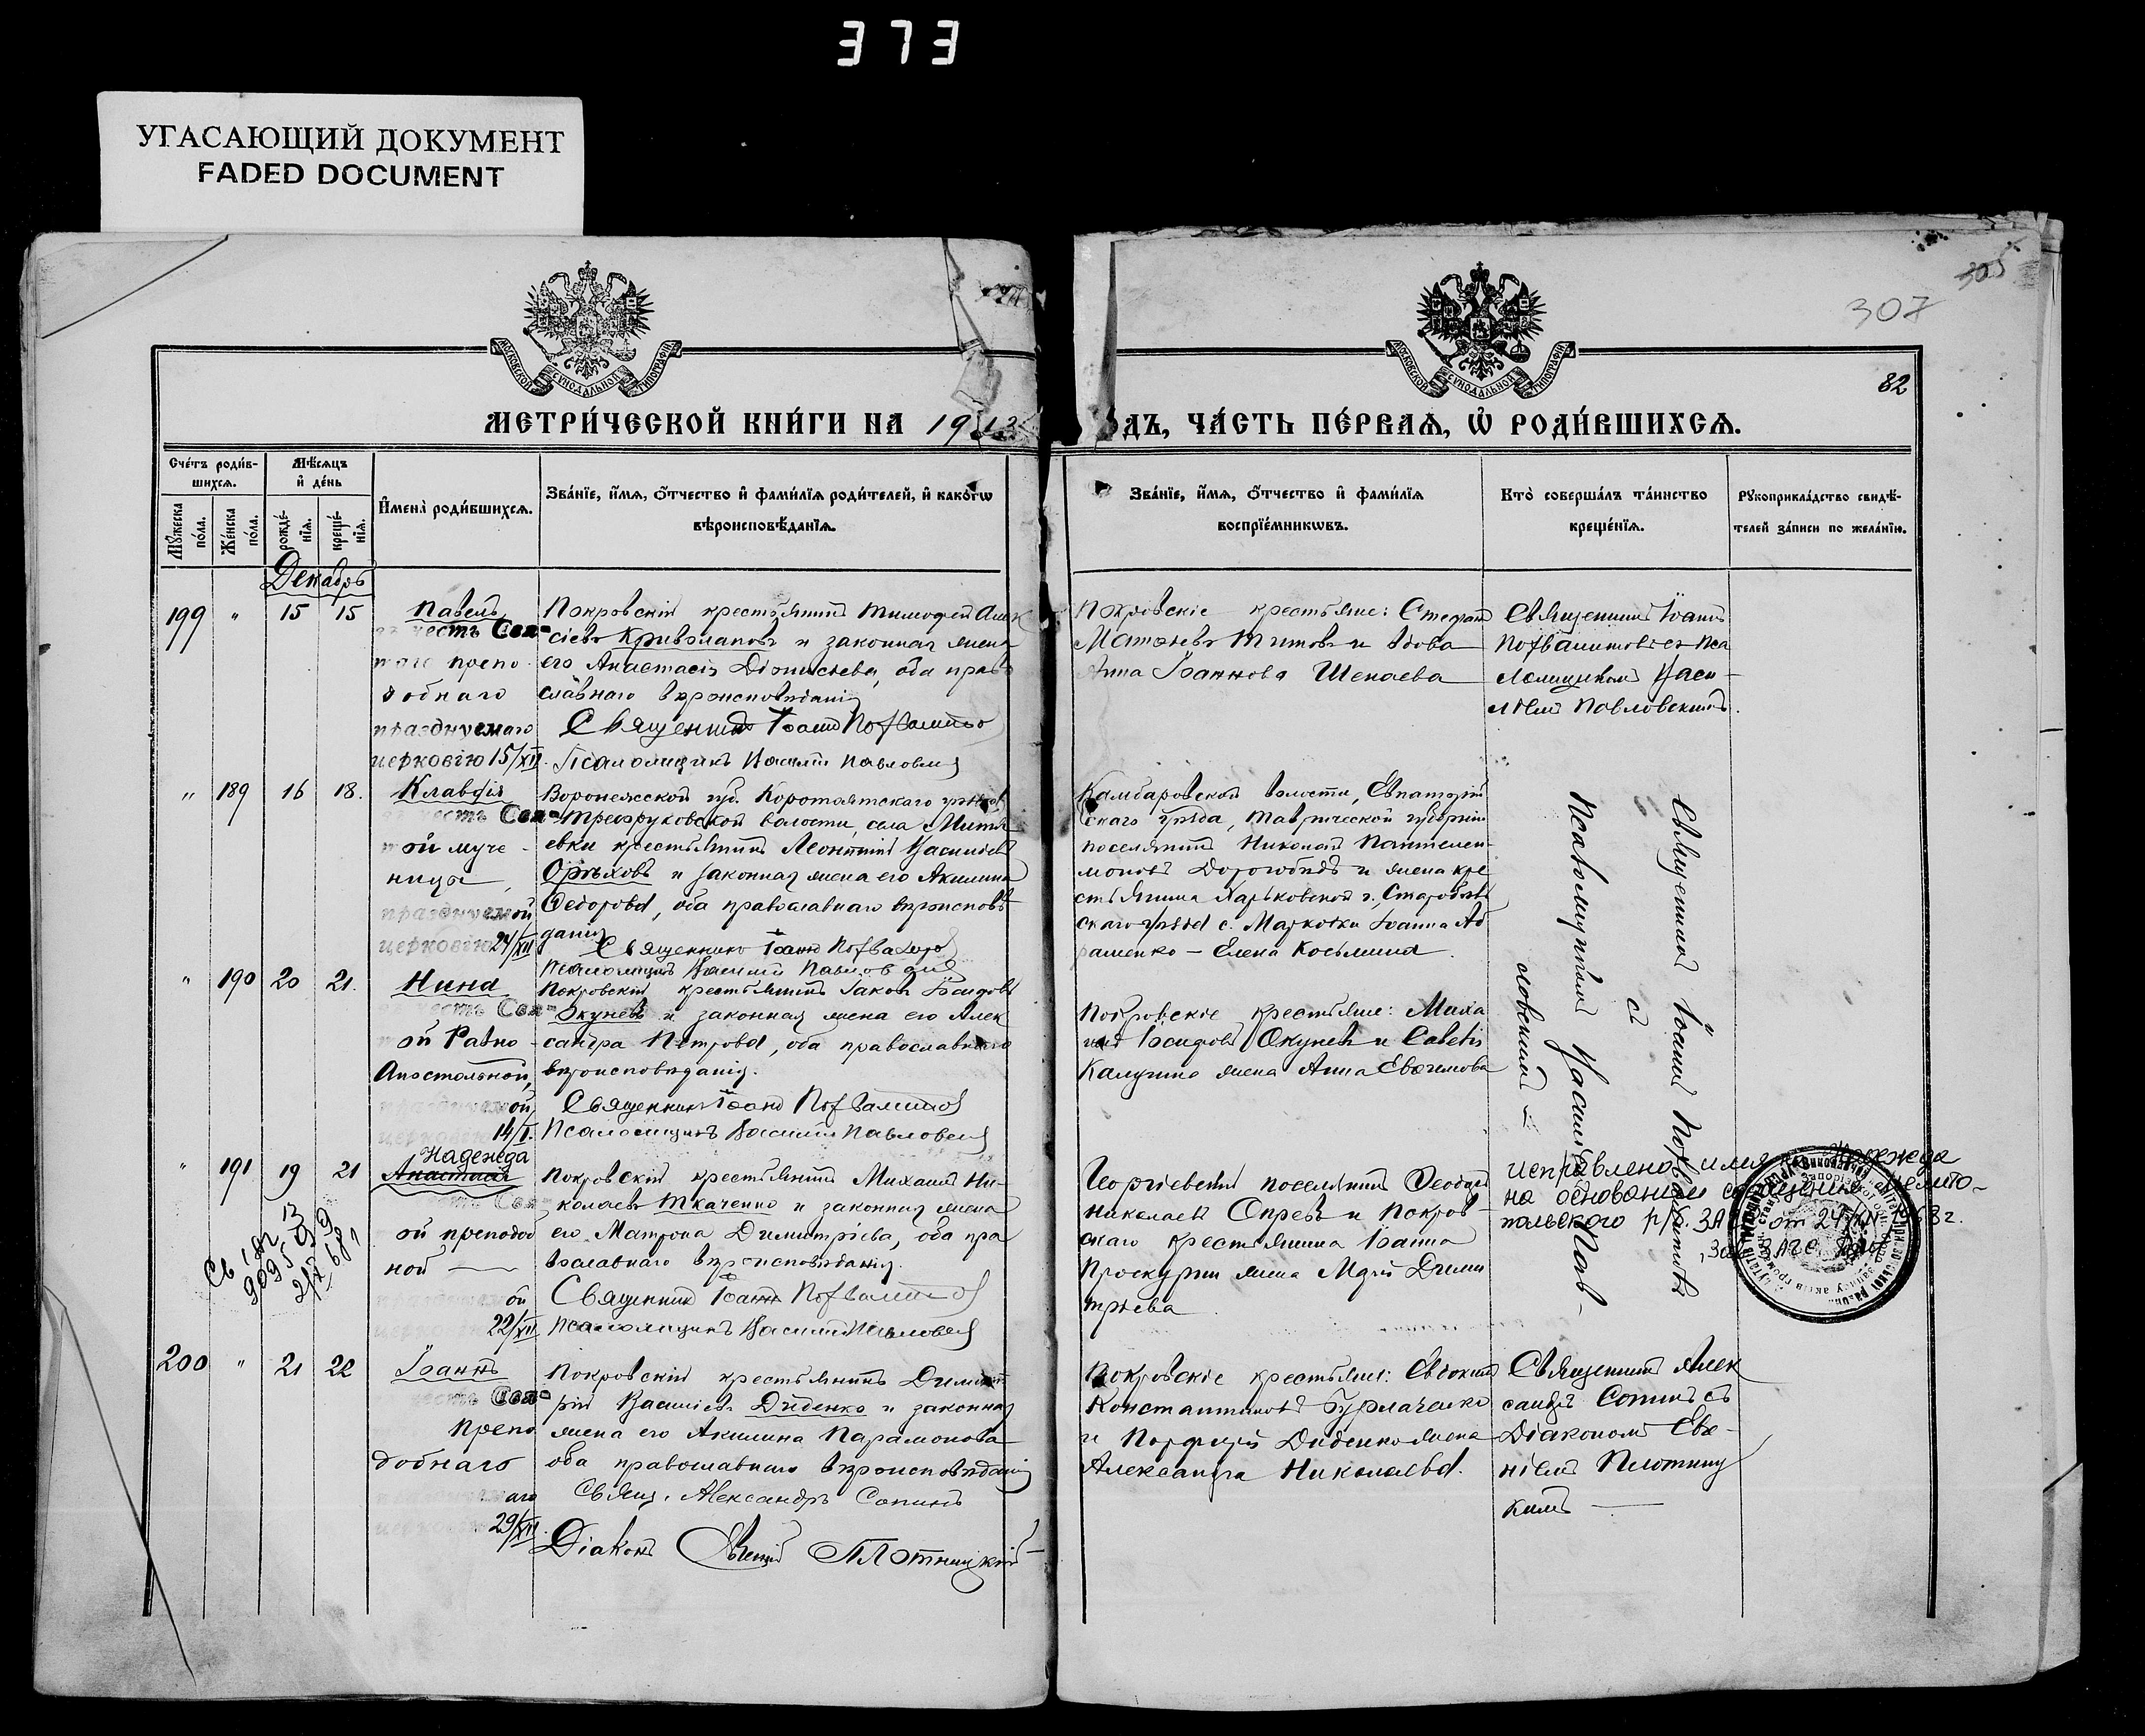 373
УГАСАЮЩИЙ ДОКУМЕНТ
FADED DOCUMENT
305
307
82
МОСКОВСКОЙ СѴНОДАЛЬНОЙ ТИПОГРАФІИ
МОСКОВСКОЙ СѴНОДАЛЬНОЙ ТИПОГРАФІИ
МЕТРИ́ЧЕСКОЙ КНИ́ГИ НА 1913
ДЪ, ЧА́СТЬ ПЕ́РВАѦ, Ѡ҆ РОДИ́ВШИХСѦ.
Счетъ роди́вшихсѧ.
Мѣ́сѧцъ и҆ де́нь
Мꙋ́жеска по́ла.
Же́нска по́ла.
рожде́нїѧ.
креще́нїѧ.
И҆мена̀ роди́вшихсѧ.
Зва́нїе, и҆́мѧ, ѻ҆́тчество и҆ фами́лїѧ роди́телей, и҆ како́гѡ
вѣроисповѣ́данїѧ.
Зва́нїе, и҆́мѧ, ѻ҆́тчество и҆ фами́лїѧ
воспрїе́мникѡвъ.
Кто̀ соверша́лъ та́инство
креще́нїѧ.
Рꙋкоприкла́дство свидѣ́-
телей за́писи по жела́нїю.
Декабрь
199 " 15 15
Павелъ
честь Свя-
того препо
добнаго
празднуемаго
церковію 15/XII.
Покровскій крестьянинъ Тимофей Алек
сіевъ Кривэлаповъ и законная жена
его Анастасія Діонисіева, оба право
славнаго вѣроисповѣданія
Священникъ Іоаннъ
Псаломщикъ Василій Павловскій
Покровскіе крестьяне: Стефанъ
Матѳіевъ Титовъ и вдова
Анна Іоаннова Шепаева
Священникъ Іоаннъ
Похвалитовъ съ Пса
ломщикомъ Васи-
ліемъ Павловскимъ.
" 189 16 18.
Клавдія
честь Свя-
той муче-
ницы
празднуемой
церковію 24/XII
Воронежской губ. Коротоякскаго уѣзда,
волости, села
евки крестьянинъ Леонтій Васильевъ
Орѣховъ и законная жена его Акилина
Ѳедорова, оба православнаго вѣроисповѣ
данія
Священникъ Іоаннъ
Псаломщикъ Василій Павловскій
Камбаровской волости, Евпаторій
скаго уѣзда, Таврической губерніи
поселянинъ Николай Пантелеи-
моновъ и жена кре
стьянина Харьковской г. Старобѣль
скаго уѣзда с. Марковки Іоанна Аб
раменко - Елена Косьмина
Священникъ Іоаннъ Похвалитовъ
съ
Псаломщикомъ Василіемъ Пав-
ловскимъ
" 190 20 21.
Нина
честь Свя-
ой Равно
Апостольной,
празднуемой
14/I.
Покровскій крестьянинъ Іаковъ Ісидоровъ
Окуневъ и законная жена его Алек
сандра Петрова, оба православнаго
вѣроисповѣданія.
Священникъ Іоаннъ
Псаломщикъ Василій Павловскій
Покровскіе крестьяне: Миха
илъ Ісидоровъ Окуневъ и Савви
Калугина жена Анна Евѳимова
" 191 19 21
Надежда
Анастасія
Свя-
ой преподоб
ной
ой
22/XII
Покровскій крестьянинъ Михаилъ Ни-
колаевъ Ткаченко и законная жена
его Матрона Димитріева, оба пра
вославнаго вѣроисповѣданія.
Священникъ Іоаннъ
Псаломщикъ Василій Павловскій
Георгіевскій поселянинъ Ѳеодоръ
Николаевъ и Покров-
скаго крестьянина Іоанна
жена Марія Дими
тріева
исправлено имя на Надежда
на основании сообщения Мелито-
польского р/б. ЗАГС от 24/XII 1968 г.
Зав. ЗАГС
200 " 21 22
Іоаннъ
честь Свя-
препо
добнаго
аго
29/XII.
Покровскій крестьянинъ Димит
рій Васильевъ Диденко и законная
жена его Акилина Парамонова
оба православнаго вѣроисповѣданія
Свящ. Александръ Сопинъ
Діаконъ Евгеній Плотницкій
Покровскіе крестьяне: Евдокимъ
Константиновъ Бурлаченко
и Порфирія Диденко жена
Александра Николаева.
Священникъ Алек
сандръ Сопинъ съ
Діакономъ Евге-
ніемъ Плотниц
кимъ